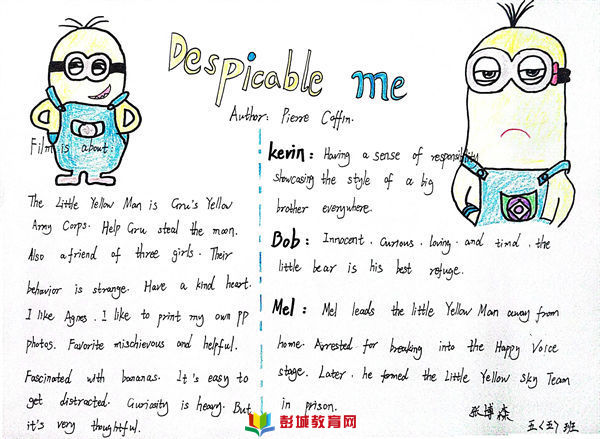 Despicable me
Author: Pierre Coffin.
Film is about:
The Little Yellow Man is Gru's Yellow
Army Corps. Help Gru steal the moon.
Also a friend of three girls. Their
behavior is strange. Have a kind heart.
I like Agnes. I like to print my own PP
photos. Favorite mischievous and helpful.
Fascinated with bananas. It's easy to
get distracted. Guriosity is heavy. But
it's very thoughtful.
kevin: Having a sense of responsibility
showcasing the style of a big
brother everywhere.
Bob: Innocent. curious. loving. and timd. the
little bear is his best refuge.
Mel: Mel leads the little Yellow Man away from
home. Arrested for breaking into the Happy Voice
stage. Later, he formed the Little Yellow Sky Team
in prison.
张博森
五〈5〉班
彭城教育网